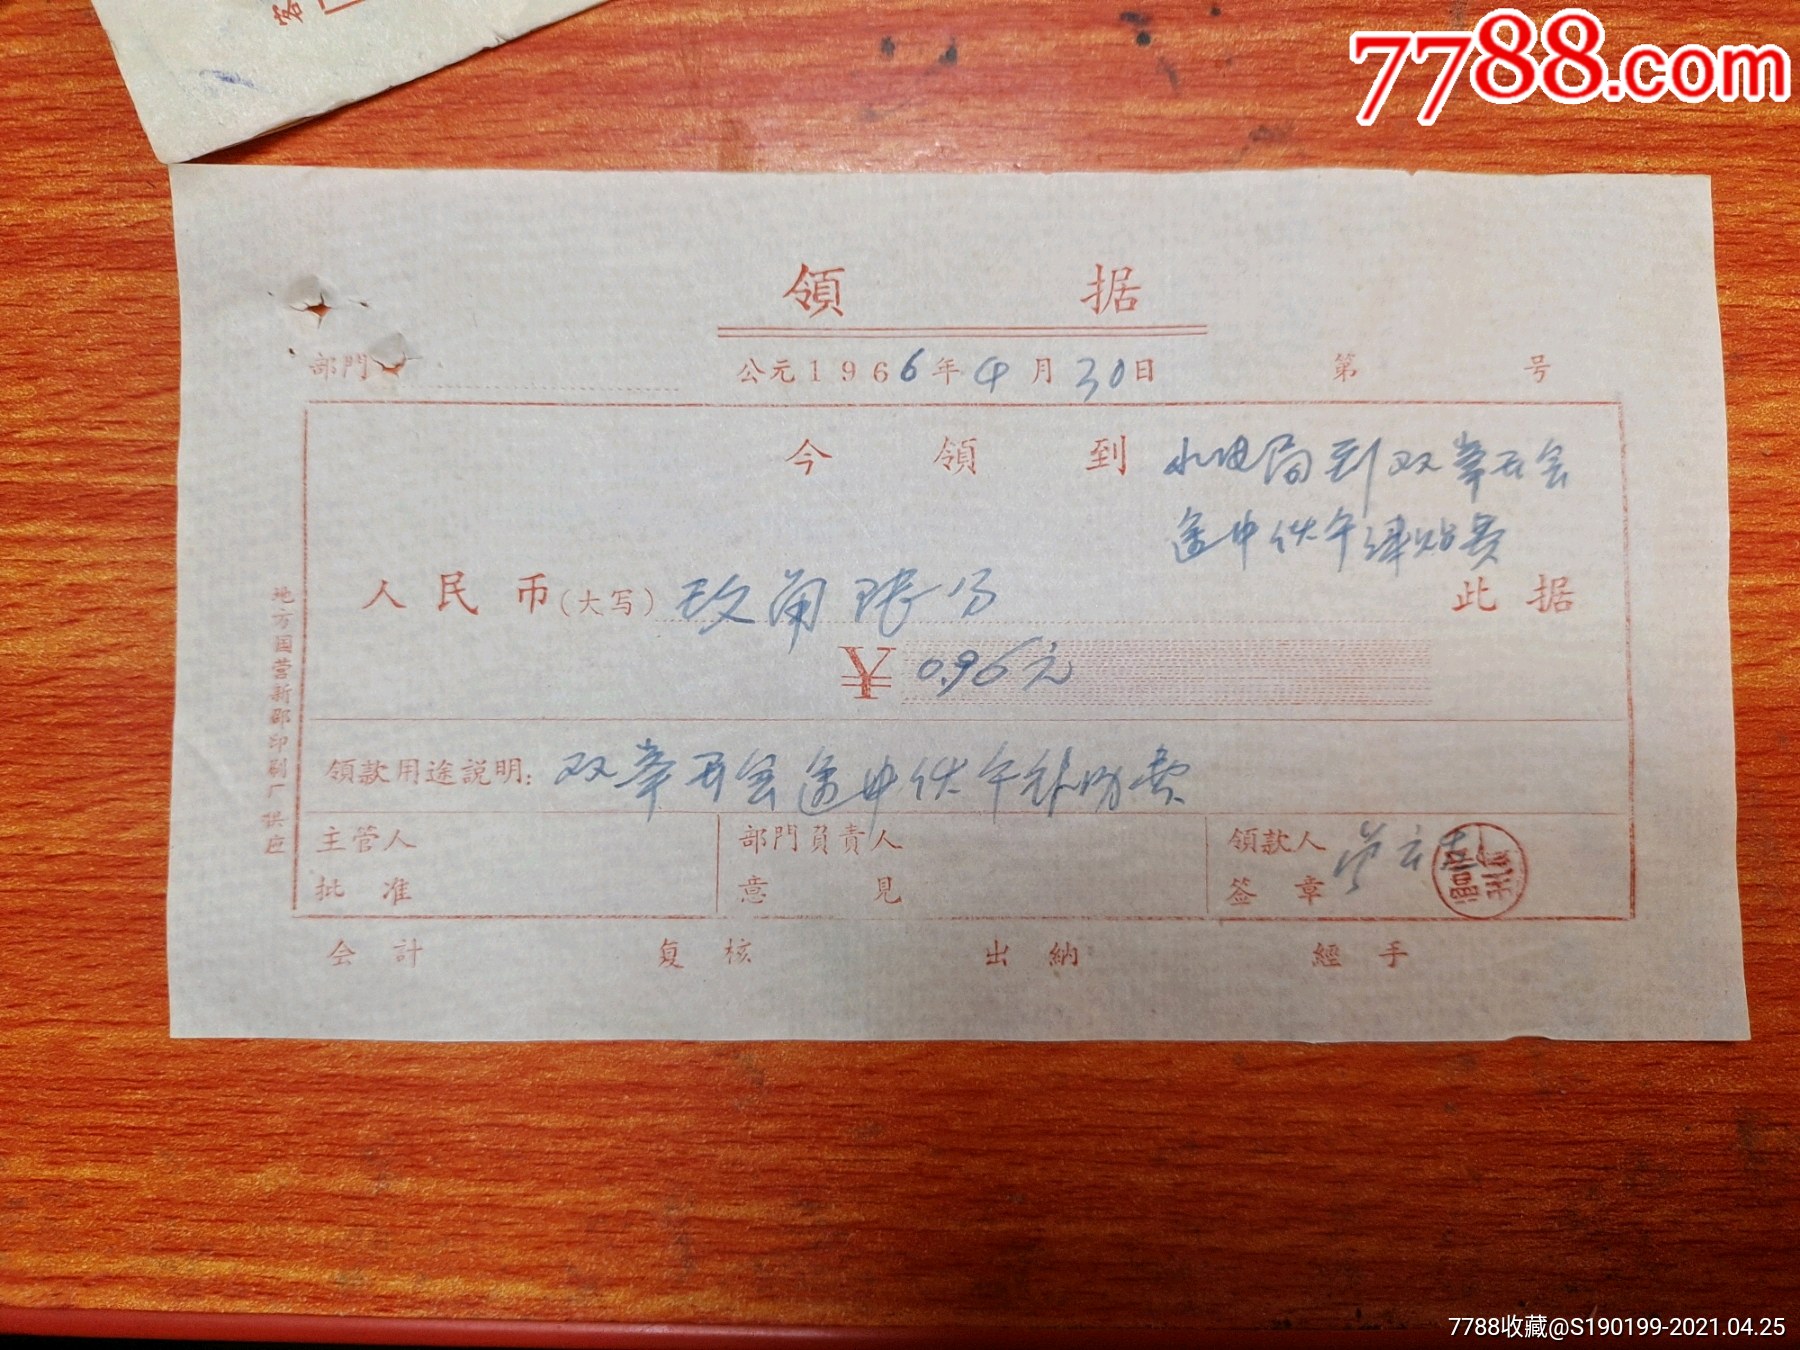 7788.com
領 据
部門
公元1966年4月30日
第 号
今 領 到 水电局到双峯开会
途中伙午津贴费
人民币(大写) 玖角陆分
此据
¥ 0.96元
領款用途説明: 双峯开会途中伙午补助费
主管人
批 准
部門負責人
意 見
領款人
签 章
会 計
复 核
出 納
經 手
地方国营新邵印刷厂供应
7788收藏@S190199-2021.04.25